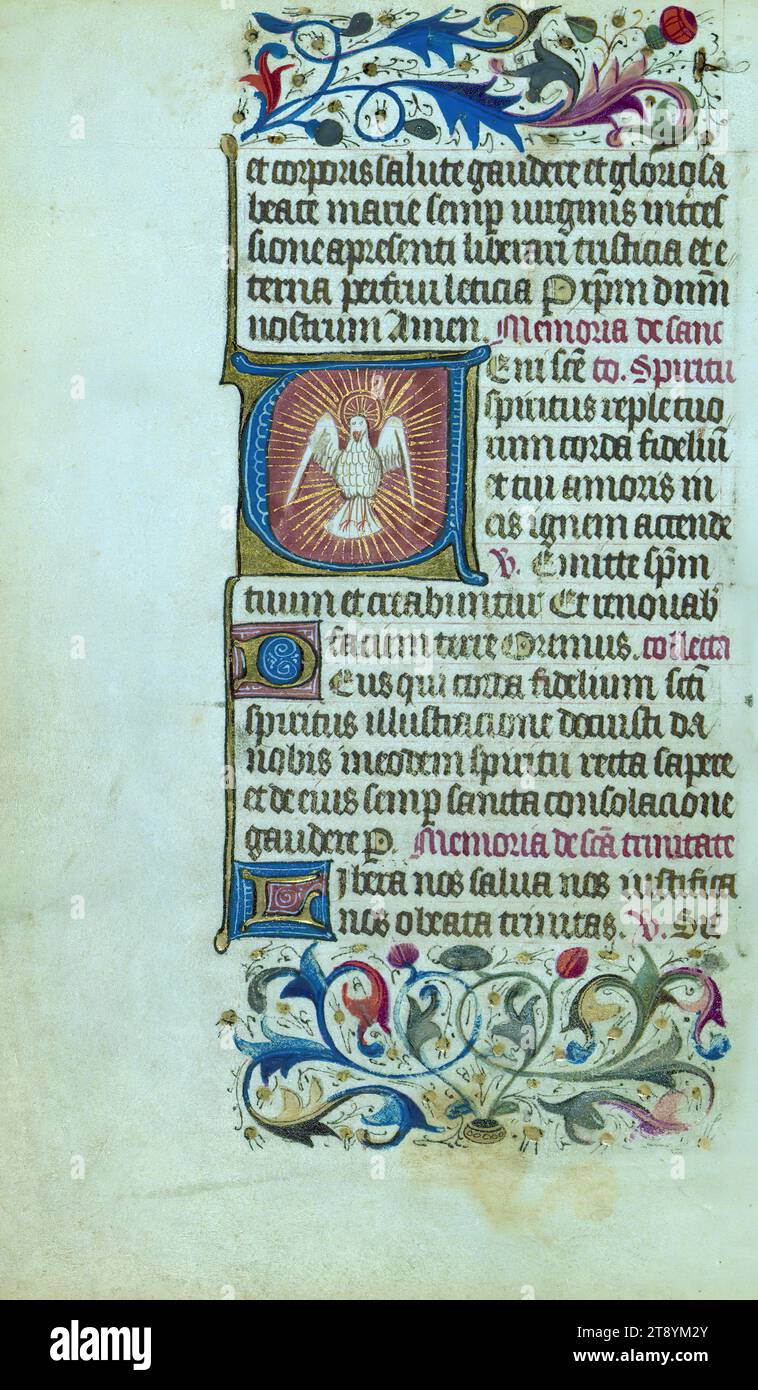 et corporis salute gaudere et gloriosa
beate marie semp virginis intces
sione a presenti liberari tristicia et e
terna perfrui leticia P xpm dnm
nostrum Amen. Memoria de sanc
Eni scē to. Spiritu
spiritus reple tuo
rum corda fideliū
et tui amoris in
eis ignem accende
V. Emitte spm
tuum et creabuntur Et renouab
faciem terre Oremus. collecta
Deus qui corda fidelium sctī
spiritus illustracione docuisti da
nobis in eodem spiritu recta sapere
et de eius semp sancta consolacione
gaudere P. Memoria de scā trinitate
Libera nos salua nos iustifica
nos o beata trinitas. V. Sit
alamy
Image ID: 2T8YM2Y
www.alamy.com